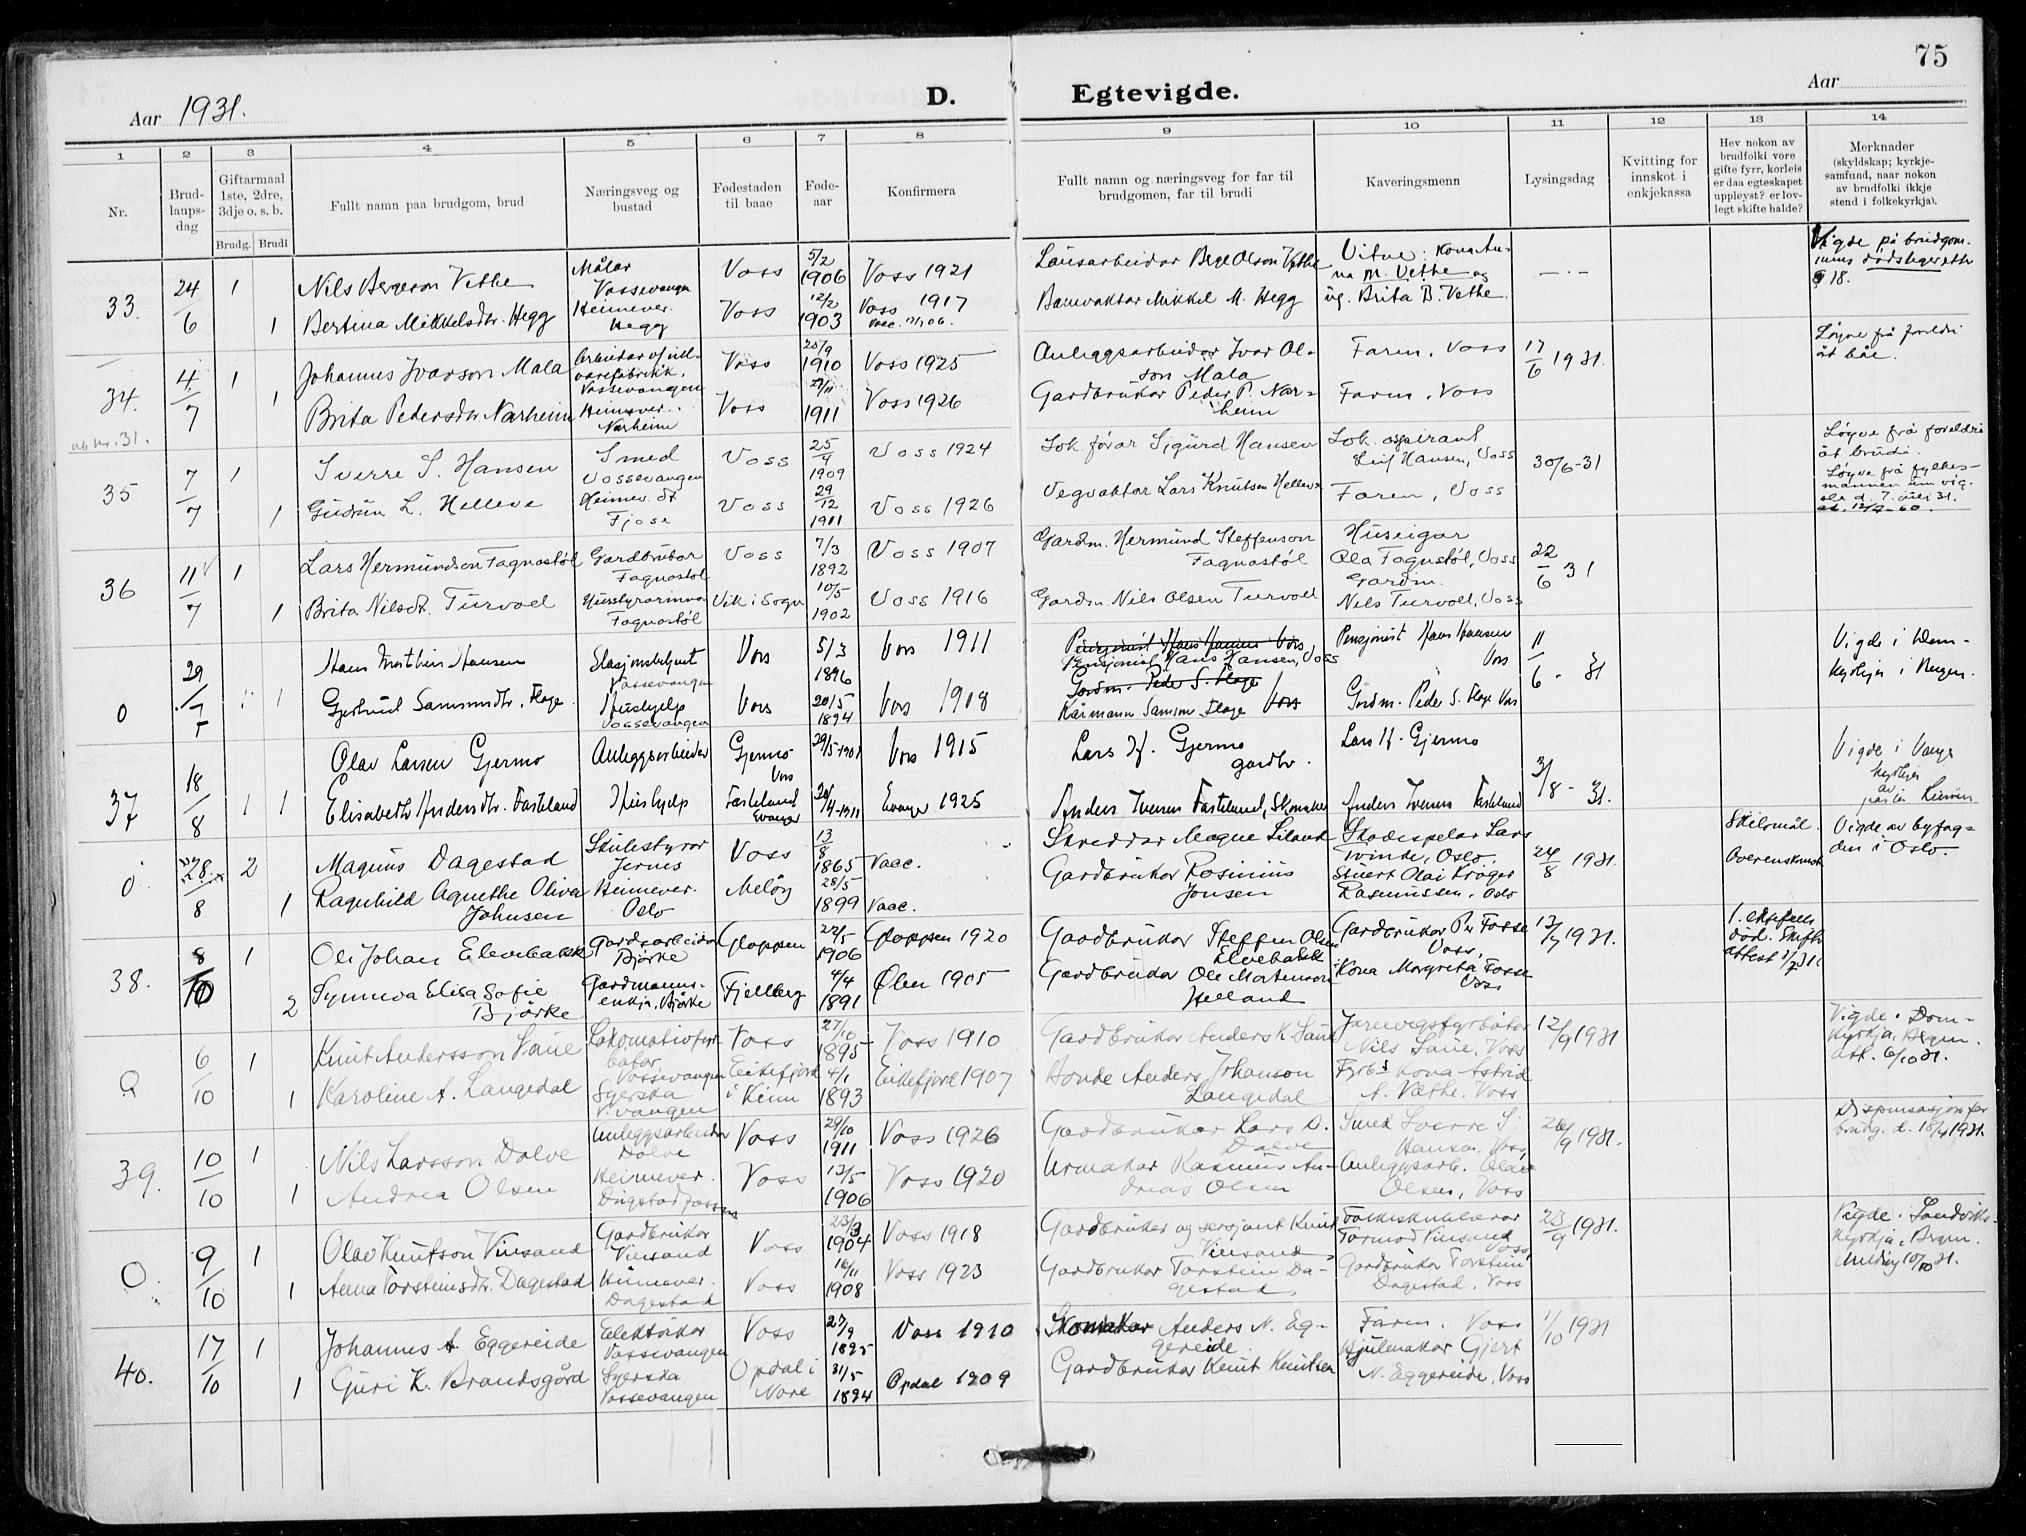 75
Aar 1931.
D. Egtevigde.
Aar
1 2 3 4 5 6 7 8 9 10 11 12 13 14
Nr.
Brud-
laups-
dag
Giftarmaal
1ste, 2dre,
3dje o. s. b.
Brudg. Brudi
Fullt namn paa brudgom, brud
Næringsveg og
bustad
Fødestaden
til baae
Føde-
aar
Konfirmera
Fullt namn og næringsveg for far til
brudgomen, far til brudi
Kaveringsmenn
Lysingsdag
Kvitting for
innskot i
enkjekassa
Hev nokon av
brudfolki vore
gifte fyrr, korleis
er daa egteskapet
uppløyst? er lov-
legt skifte halde?
Merknader
(skyldskap; kyrkje-
samfund, naar nokon
av brudfolki ikkje
stend i folkekyrkja).
33. 24/6
1 Nils Bergeson Vethe Målar Vossevangen Voss 5/2 1906 Voss 1921 Bryl Olson Vethe Vitne: Kona An-
na M. Vethe og
1 Bertina Mikkelsdtr. Hegg Heimever. Hegg Voss 12/2 1903 Voss 1917 Banevaktar Mikkel M. Hegg ug. Brita B. Vethe.
Vigde på brudgom-
mens dødsleger etter
§ 18.
34. 4/7
1 Johannes Ivarson Mala Arbeidar v/ull-
varefabrikk, Vossevangen Voss 25/9 1910 Voss 1925 Anleggsarbeidar Ivar Ol-
son Mala Faren, Voss 17/6 1931.
1 Brita Pedersdtr. Narheim Heimever. Narheim Voss 1911 Voss 1926 Gardbrukar Peder P. Nar-
heim Faren, Voss
Løyve frå foreldri
åt båe.
nb nr. 31.
35 7/7
1 Sverre S. Hansen Smed Vossevangen Voss 25/4 1909 Voss 1924 Lok. førar Sigurd Hansen Lok. aspirant
Leif Hansen, Voss 30/6-31
1 Gudrun L. Helleve Heimev. dt Fjose Voss 29/12 1911 Voss 1926 Vegvaktar Lars Knutsen Helleve Faren, Voss
Løyve frå foreldri
åt brudi.
Løyve frå fylkes-
mannen um vig-
sle d. 7. juli 31.
36 11/7
1 Lars Hermundson Fagnastøl Gardbrukar Fagnastøl Voss 7/3 1892 Voss 1907 Gardm. Hermund Steffenson
Fagnastøl Huseigar
Ola Fagnastøl, Voss 22/6 31
1 Brita Nilsdt. Turvoll Husstyrarinna Fagnastøl Vik i Sogn 10/5 1902 Voss 1916 Gardm. Nils Olsen Turvoll Gardm.
Nils Turvoll, Voss
0 29/7
1 Hans Hansen Stasjonsbetjent Vossevangen Voss 5/3 1896 Voss 1911 Pensjonist Hans Hansen, Voss Pensjonist Hans Hansen Voss 11/6 - 31
1 Gjertrud Samsondtr. Flage Hushjelp Vossevangen Voss 20/5 1894 Voss 1908 Gardm. Peder S. Flage Voss
Kårmann Samson Flage Gardm. Peder S. Flage Voss
Vigde i Dom-
kyrkja i Bergen.
37 18/8
1 Olav Larsen Gjermo Anleggsarbeidar Gjermo Voss 29/5-1901 Voss 1915 Lars H. Gjermo
gardbr. Lars H. Gjermo 3/8 - 31.
1 Elisabeth Andersdtr. Fasteland Hushjelp Fasteland Evanger 1911 Evanger 1925 Anders Iversen Fasteland, Skomaker Anders Iversen Fasteland
Vigde i Vangs
kyrkja
av
0 28/8
2 Magnus Dagestad Skulestyrar Jernes Voss 13/8 1865 Vacc. Skreddar Magne Liland Skodespelar Lars
Tvinde, Oslo. 24/8 1931.
1 Ragnhild Agnethe Oliva
Johnsen Heimever. Oslo Meløy 28/5 1899 Vacc. Gardbrukar Rosinius
Jonsen Stuert Olai Krøger
Rasmussen, Oslo
Skilsmål.
Overenskomst
Vigde av byfog-
den i Oslo.
38. 8/10
1 Ole Johan Elvebakk Gardsarbeidar Bjørke Gloppen 22/5 1906 Gloppen 1920 Gardbrukar Steffen Olsen
Elvebakk Gardbrukar Per Fosse
Voss. 13/7 1931.
2 Synneva Elisa Sofie
Bjørke Gardmanns-
enkja, Bjørke Fjellberg 4/4 1891 Ølen 1905 Gardbrukar Ole Mortenson
Helland Kona Margreta Fosse
Voss
død. Skifte
attest
0 6/10
1 Knut Andersson Saue Lokomotivfyr-
bøtar Vossevangen Voss 27/10 1895 Voss 1910 Gardbrukar Anders K. Saue Jarnvegsfyrbøtar
Nils Saue, Voss 12/9 1931
1 Karoline A. Langedal Syerska V.vangen Eikefjord
i Kinn 4/1 1893 Eikefjord 1907 Bonde Anders Johanson
Langedal Fyrb. kona Astrid
A. Vethe. Voss
Vigde i Dom-
kyrkja, Bergen.
att. 6/10 31.
39. 10/10
1 Nils Larsson Dolve Anleggsarbeidar Dolve Voss 29/10 1911 Voss 1926 Gardbrukar Lars D.
Dolve Smed Sverre S.
Hansen, Voss 26/9 1931.
1 Andrea Olsen Heimever. Dagestadfossen Voss 13/5 1906 Voss 1920 Urmakar Rasmus An-
dreas Olsen Anleggsarb. Olav
Olsen, Voss
Dispensasjon for
brudg. d. 18/9 1931.
0. 9/10
1 Olav Knutson Vinsand Gardbrukar Vinsand Voss 23/3 1904 Voss 1918 Gardbrukar og sersjant Knut
Vinsand Folkeskulelærar
Tormod Vinsand
Voss 23/9 1931.
1 Anna Torsteinsdtr. Dagestad Heimever. Dagestad Voss 16/11 1908 Voss 1923 Gardbrukar Torstein Da-
gestad Gardbrukar Torstein
Dagestad, Voss
Vigde i Sandviks-
kyrkja, Bergen.
Melding 10/10 31.
40. 17/10
1 Johannes A. Eggereide Elektrikar Vossevangen Voss 27/9 1895 Voss 1910 Skomakar Anders N. Eg-
gereide Faren. Voss 1/10 1931
1 Guri K. Brandsgård Syerska Vossevangen Opdal i
Nore 31/5 1894 Opdal 1909 Gardbrukar Knut Knutsen Hjulmakar Gjert
N. Eggereide, Voss